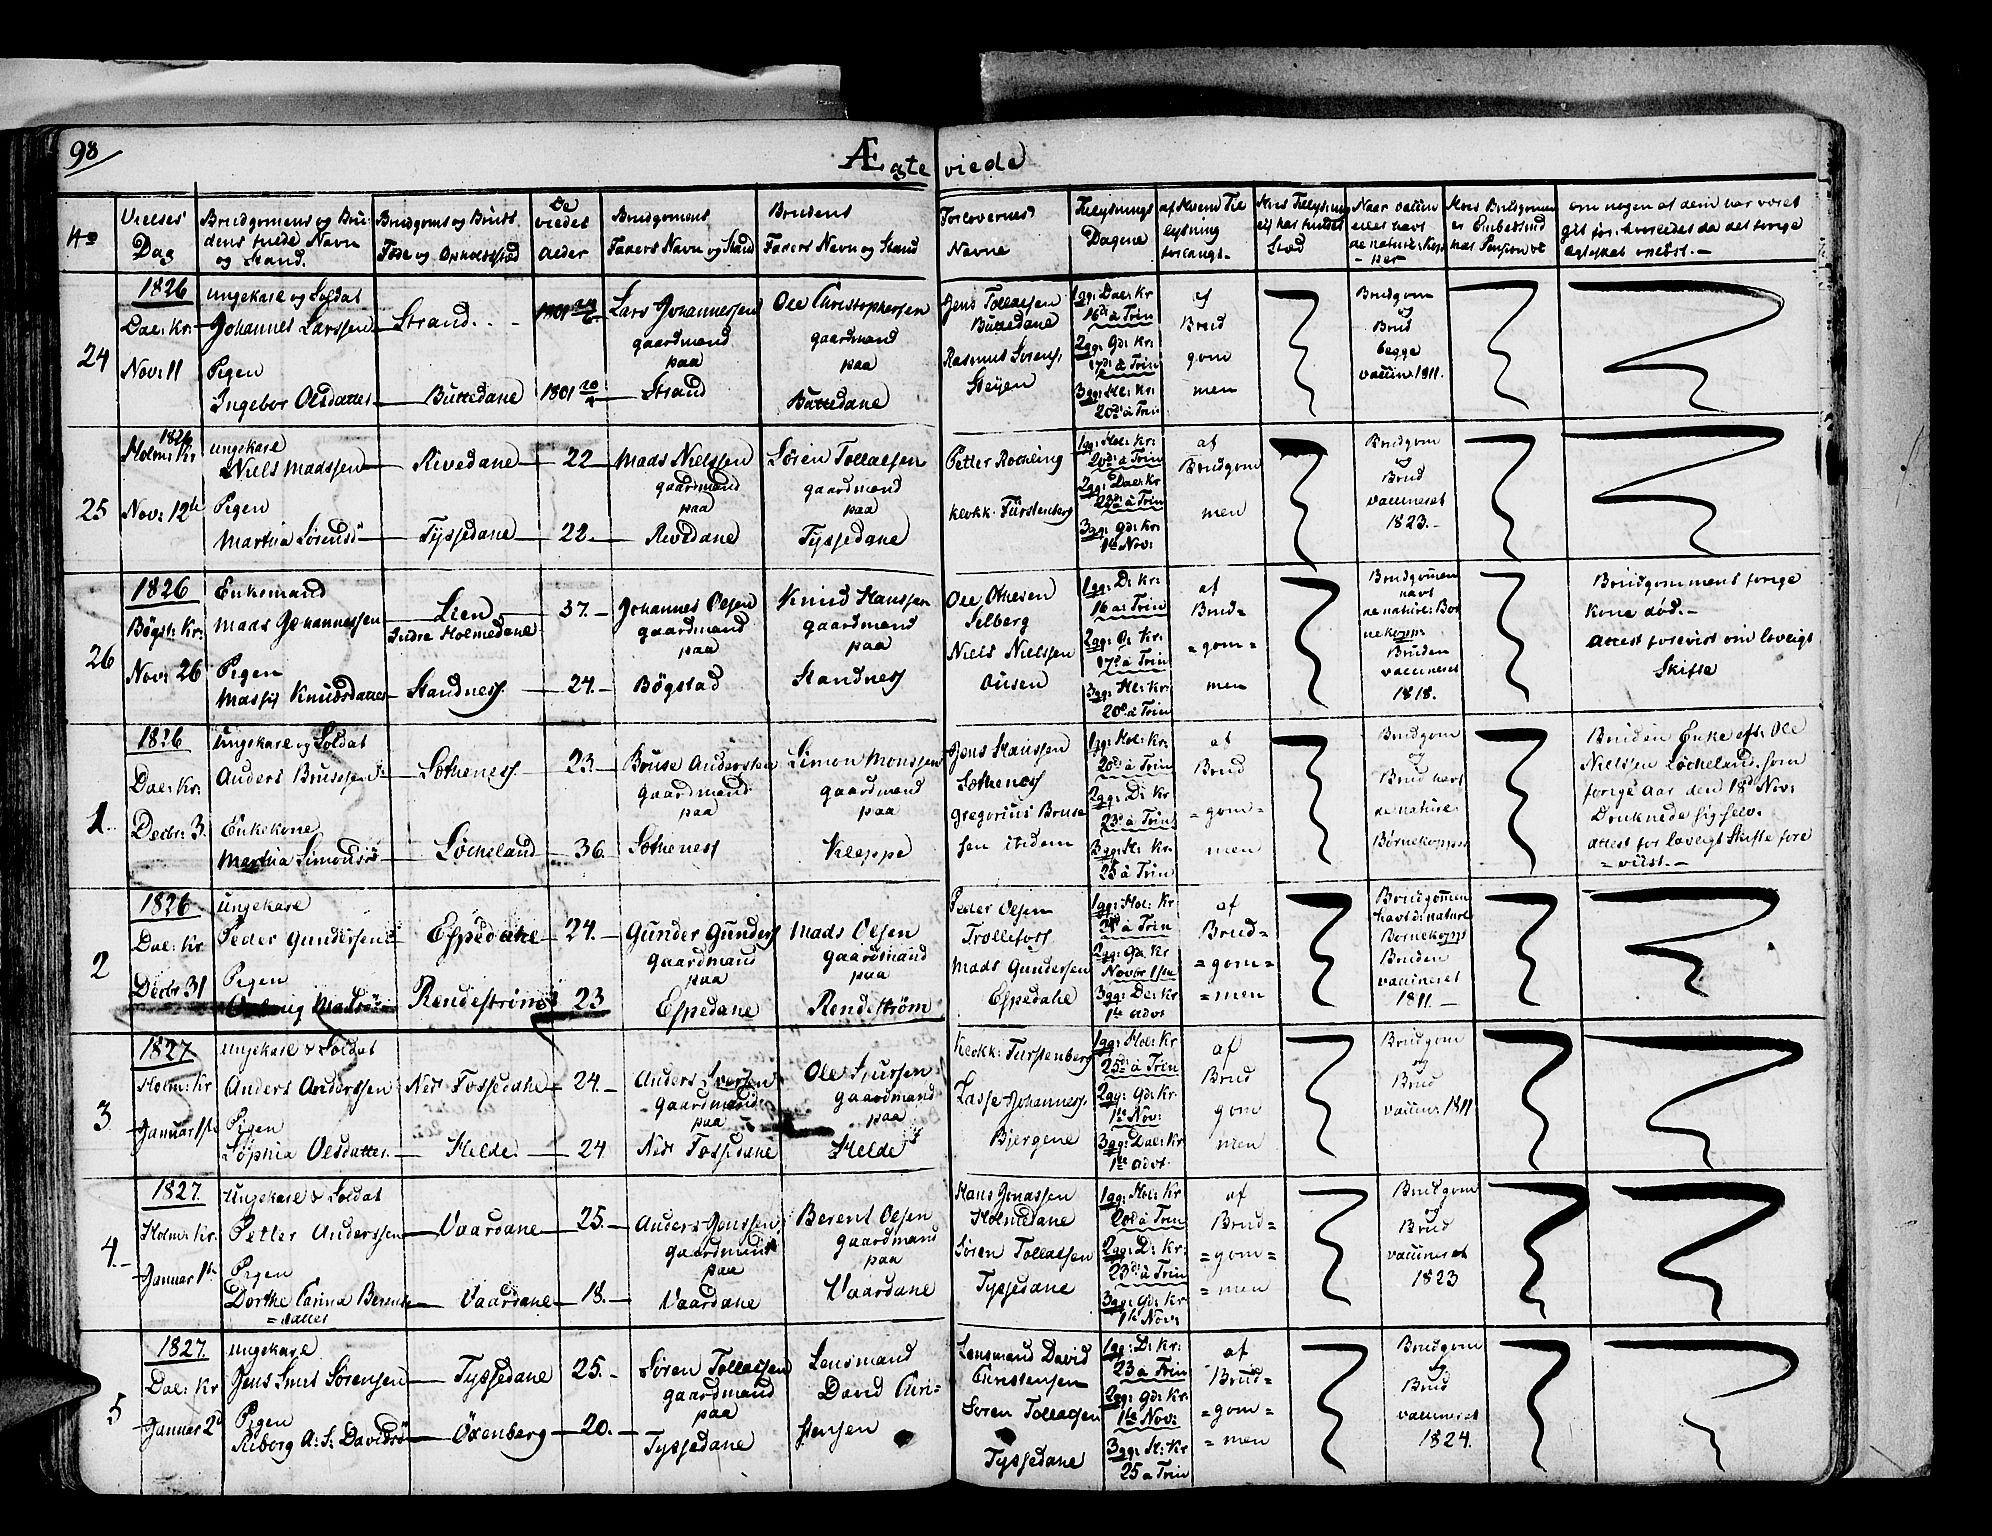 98
Ægte viede
No
Vielses Dag
Brudgomens og Brudens fulde Navn og Stand.
Brudgoms og Bruds Føde og Opholdssted
De viedes Alder
Brudgomens Faders Navn og Stand
Brudens Faders Navn og Stand
Forlovernes Navne
Tillysnings Dagene
af hvem Tillysning forlangt
Hvis Tillysning ej har fundet Sted
om nogen af dem har været gift før, hvorledes da det forrige ægteskab ophævt.-
24
1826
Dale: Kr.
Nov: 11
Ungekarl og Soldat
Johannes Larssen
Pigen
Ingebor Olsdatter
Strand
Buttedane
1801
1801
Lars Johannessen
gaardmand
paa
Strand
Ole Christophersen
gaardmand
paa
Buttedane
Jens Tollafsen
Buttedane
Rasmus Sørens:
1gg: Dale: Kr
16d à Trin
2gg: Gd: Kr:
17d: à Trin
3gg: Hol: Kr:
20d à Trin
af
Brud
gom
men
Brudgom
og
Brud
begge
vaccin: 1811.
25
1826
Holm: Kr.
Nov: 12te
ungekarl
Niels Madssen
Pigen
Martha Sørensd
Rivedane
Tyssedane
22
22.
Mads Nielssen
gaardmand
paa
Rivedane
Søren Tollafsen
gaardmand
paa
Tyssedane
Petter
Klokk: Fürstenberg
1gg: Hol: Kr:
20d à Trin
2gg: Dale: Kr
23d: à Trin
3gg: Gd: Kr:
1te Nov:
af
Brudgom
men
Brudgom
og
Brud
vaccineret
1823.-
26
1826
Bøgst: Kr.
Nov: 26
Enkemand
Mads Johannessen
Pigen
Knudsdatter
Lien
Indre Holmedane
Standness
37.
24.
Johannes Olsen
gaardmand
paa
Bøgstad
Knud Hanssen
gaardmand
paa
Standness
Ole
Selberg
Niels Nielssen
1gg: D: Kr:
16 à Trin
2gg: G: Kr:
17d à Trin
3gg: Hol: Kr:
20d à Trin
af
Brud=
=gom=
men
Brudgommen
havt
de naturl: Børnekopp:
Bruden
vaccineret
1818.
Brudgommens forige
Kone død.-
Attest forevist om lovligt
Skifte
1
1826
Dale: Kr.
Decbr: 3.
Ungekarl og Soldat
Anders Brusesen
Enkekone
Martha Simonsd
Sotheness
Løckeland
23
36.
Bruse Anderssen
gaardmand
paa
Sotheness
Simon Monssen
gaardmand
paa
Kleppe
Jens Hanssen
Sotheness
Gregorius Bruse
sen ibidem
1gg: Hol: Kr:
20d à Trin
2gg: D: Kr:
23d à Trin
3gg: H: Kr:
25 à Trin
af
Brud
=gom=
men
Brudgom
og
Brud havt
de naturl:
Børnekopper
Bruden Enke eft: Ole
Nielssen Løckeland, som
forige Aar den 18d Nov:
Druknede sig selv.
Attest for lovligt Skifte fore
=viist.-
2
1826
Dale: Kr
Decbr 31
Ungekarl
Peder Gundersen
Pigen
Madsd
Espedane
Rendestrøm
24.
23
Gunder Gunders
gaardmand
paa
Espedane
Mads Olsen
gaardmand
paa
Rendestrøm
Peder Olsen
Trollefoss
Mads Gundersen
Espedane
1gg: Hol: Kr
à Trin
2gg: Gd: Kr
Novbr 1ste
3gg: D: Kr
1te Advt
af
Brud=
=gom=
=men
Brudgommen
havt d: naturl
Børnekopp:
Bruden
vaccineret
1811.-
3
1827
Holm: Kr
Januar 1ste
ungekarl & Soldat
Anders Anderssen
Pigen
Sophia Olsdatter
Nedr Fossedane
Helde
24.
24
Anders Iversen
gaardmand
paa
Nedr Fossedane
Ole Siursen
gaardmand
paa
Helde
Klokk: Fürstenberg
Lasse Johanness
Bjergene
1gg: Hol: Kr
25d: à Trin
2gg: Gd: Kr.
1te Nov:
3gg: Dale: Kr
1te Advt
af
Brud
gom
men
Brudgom
og
Brud
vaccin: 1811
4.
1827.
Holm: Kr.
Januar 1ste
Ungekarl & Soldat
Petter Anderssen
Pigen
Dorthe Carina Berents
=datter
Vaardane
Vaardane
25.
18.
Anders Jonssen
gaardmand
paa
Vaardane
Berent Olsen
gaardmand
paa
Vaardane
Hans Jonassen
Holmedane
Søren Tollafsen
Tyssedane
1gg: Hol: Kr
20d à Trin
2gg: D: Kr:
23d: à Trin
3gg: Gd: Kr:
1te Nov:
af
Brud=
=gom=
=men
Brudgom
og
Brud
vaccineret
1823
5
1827.
Dale: Kr
Januar 2d
ungekarl
Jens Smit Sørensen
Pigen
Riborg A: S: Davidsd
Tyssedane
Öxenberg
25.
20.
Søren Tollafsen
gaardmand
paa
Tyssedane
Lensmand
David Chri=
stensen
Lensmand David
Christensen
Søren Tollafsen
Tyssedane
1gg: D: Kr:
23 à Trin
2gg: Gd: Kr:
1te Nov:
3gg: H: Kr
25 à Trin
af
Brud=
=gom=
=men
Brudgom
og
Brud
vaccineret
1824.